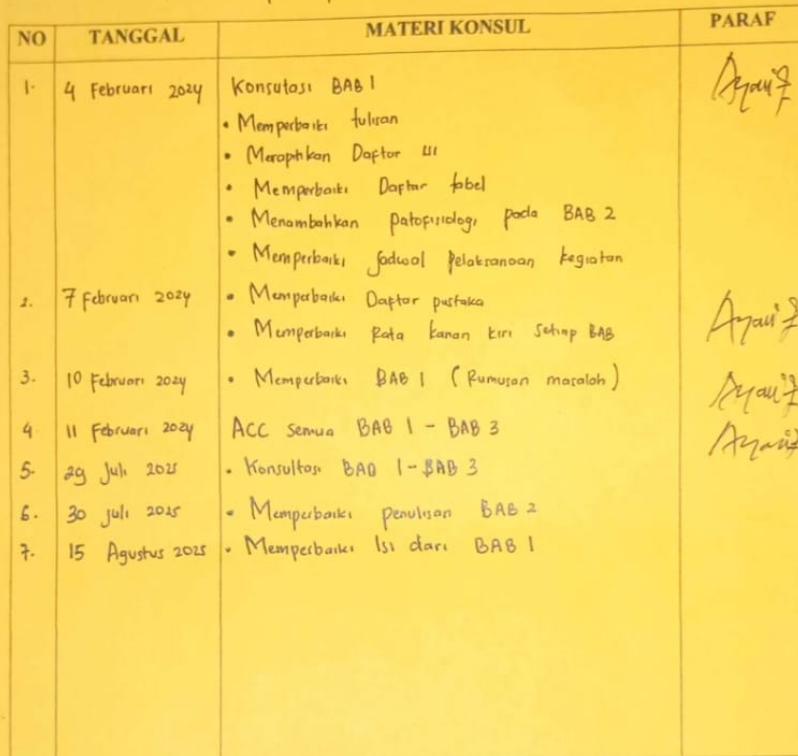 NO TANGGAL MATERI KONSUL PARAF
1. 4 Februari 2024 Konsutasi BAB 1
• Memperbaiki tulisan
• Merapihkan Daftar isi
• Memperbaiki Daftar tabel
• Menambahkan patofisiologi pada BAB 2
• Memperbaiki jadwal pelaksanaan kegiatan
2. 7 Februari 2024 • Memperbaiki Daftar pustaka
• Memperbaiki Rata kanan kiri setiap BAB
3. 10 Februari 2024 • Memperbaiki BAB 1 (Rumusan masalah)
4. 11 Februari 2024 ACC semua BAB 1 - BAB 3
5. 29 Juli 2025 • Konsultasi BAB 1 - BAB 3
6. 30 Juli 2025 • Memperbaiki penulisan BAB 2
7. 15 Agustus 2025 • Memperbaiki Isi dari BAB 1